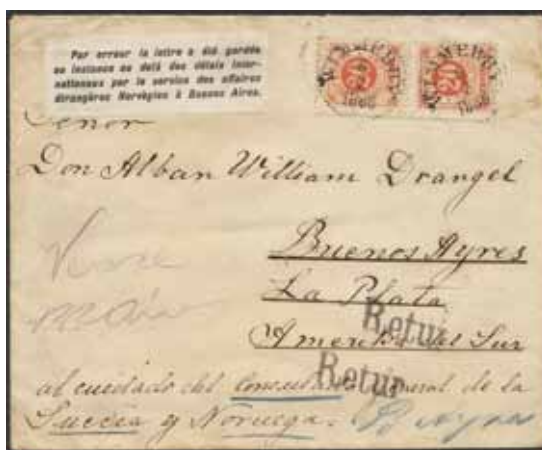 Par erreur la lettre a été gardée
en instance au delà des délais inter-
nationaux par le service des affaires
étrangères Norvègien à Buenos Aires.
WIMMERBY
WIMMERBY
20
20
Señor
Don Alban William Drangel
Buenos Ayres
La Plata
America del Sur
Retur
Retur
al cuidado del Consul de la
Suecia y Noruega.
B Ayres